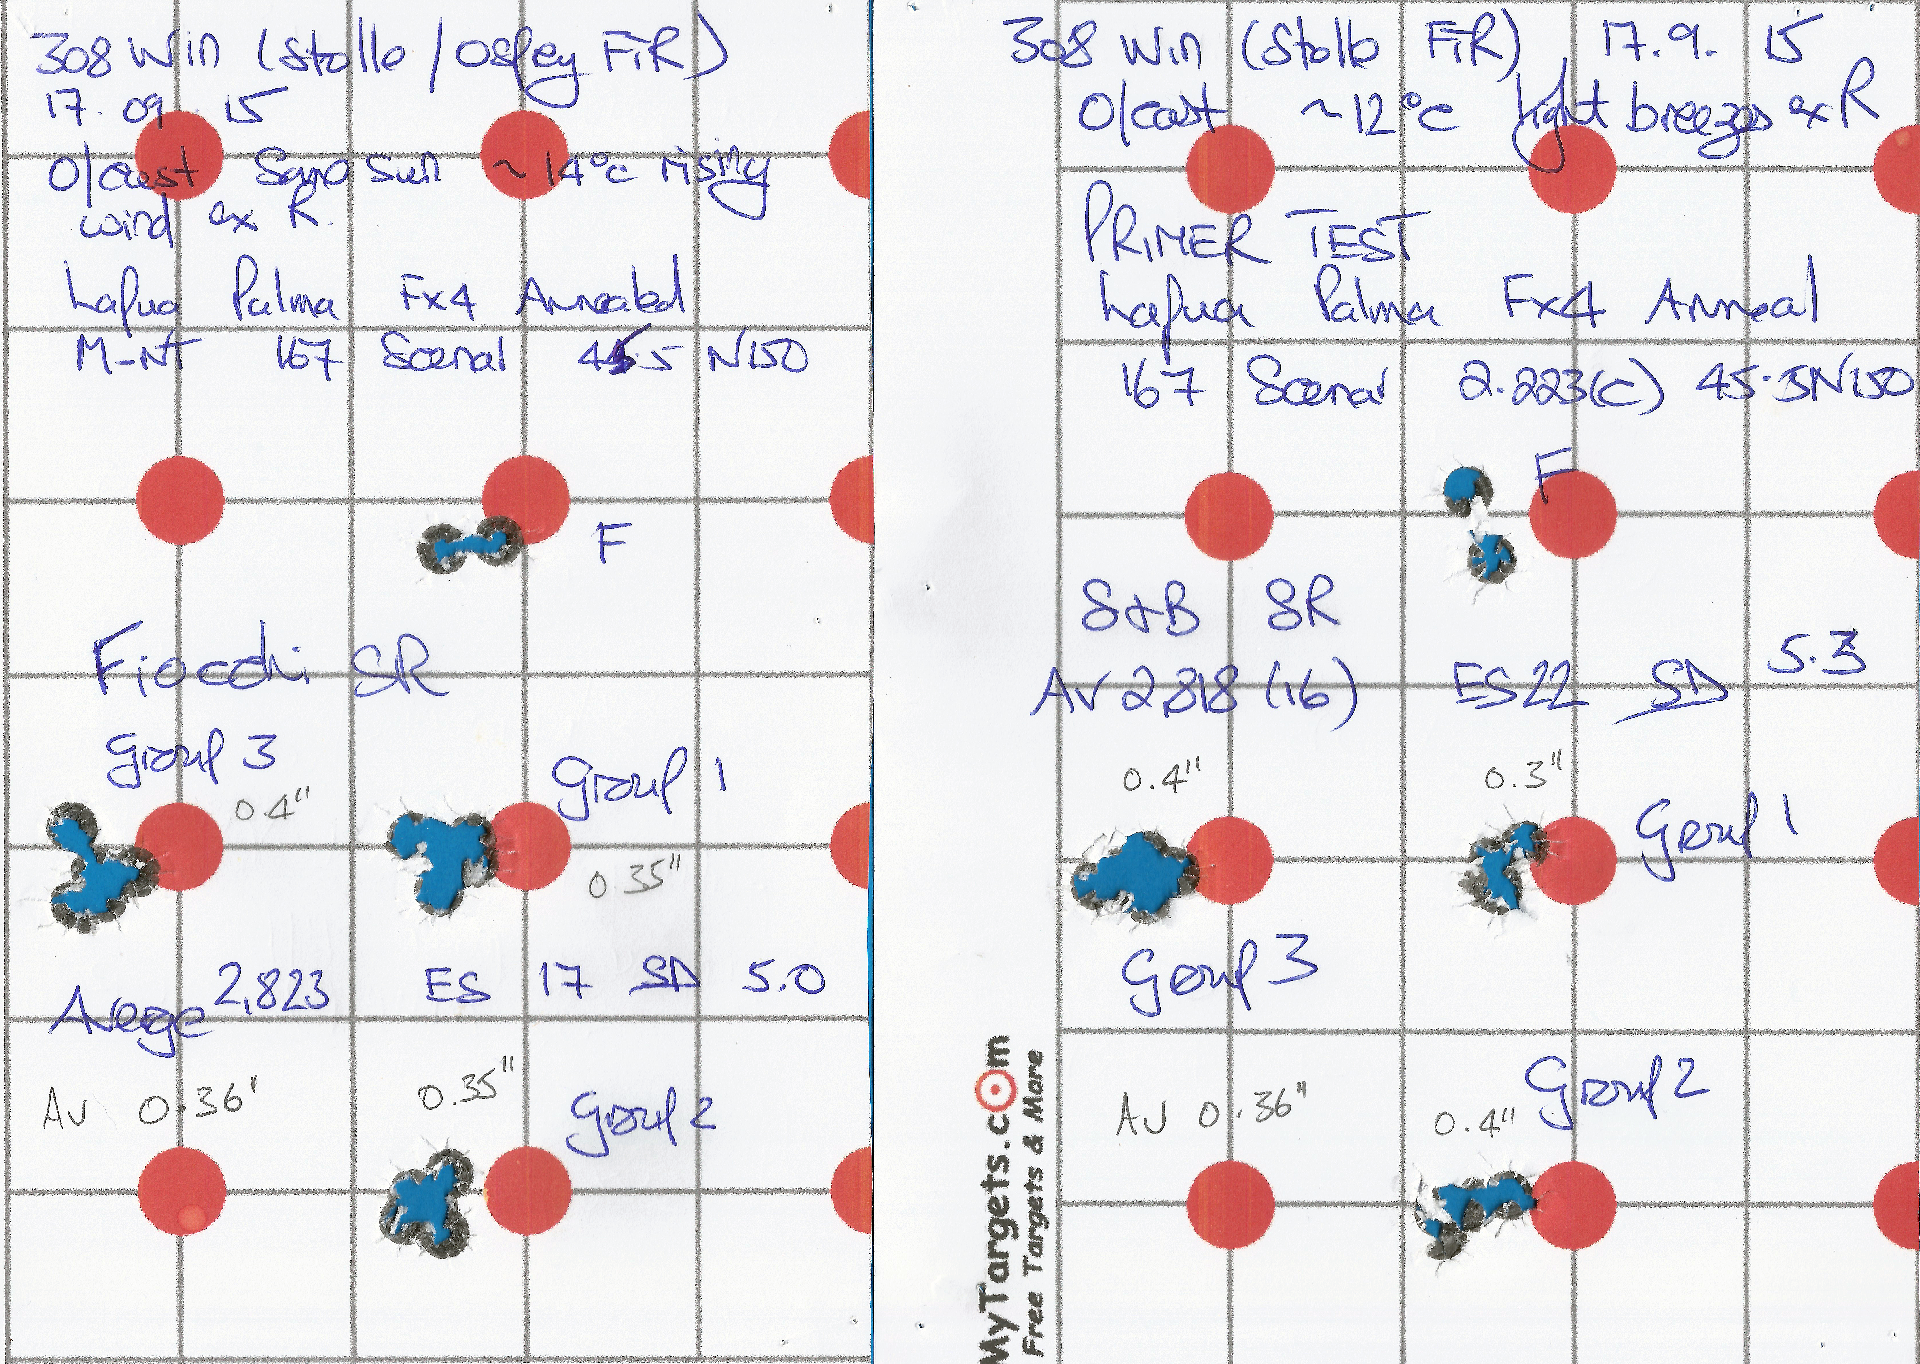 308 Win (Stolle / Osprey FTR)
17.09 15
O/cast Some sun ~14°c rising
wind ex R.
Lapua Palma Fx4 Annealed
M-NT 167 Scenar 45.5 N150
F
Fiocchi SR
Group 3
0.4"
Group 1
0.35"
Average 2,823 ES 17 SD 5.0
Av 0.36"
0.35"
Group 2
308 Win (Stolle FTR) 17.9.15
O/cast ~12°c light breezes ex R
PRIMER TEST
Lapua Palma Fx4 Anneal
167 Scenar 2.223(c) 45.5 N150
F
S+B SR
Av 2,818 (16) ES 22 SD 5.3
0.4"
0.3"
Group 1
Group 3
Av 0.36"
0.4"
Group 2
MyTargets.com
Free Targets & More